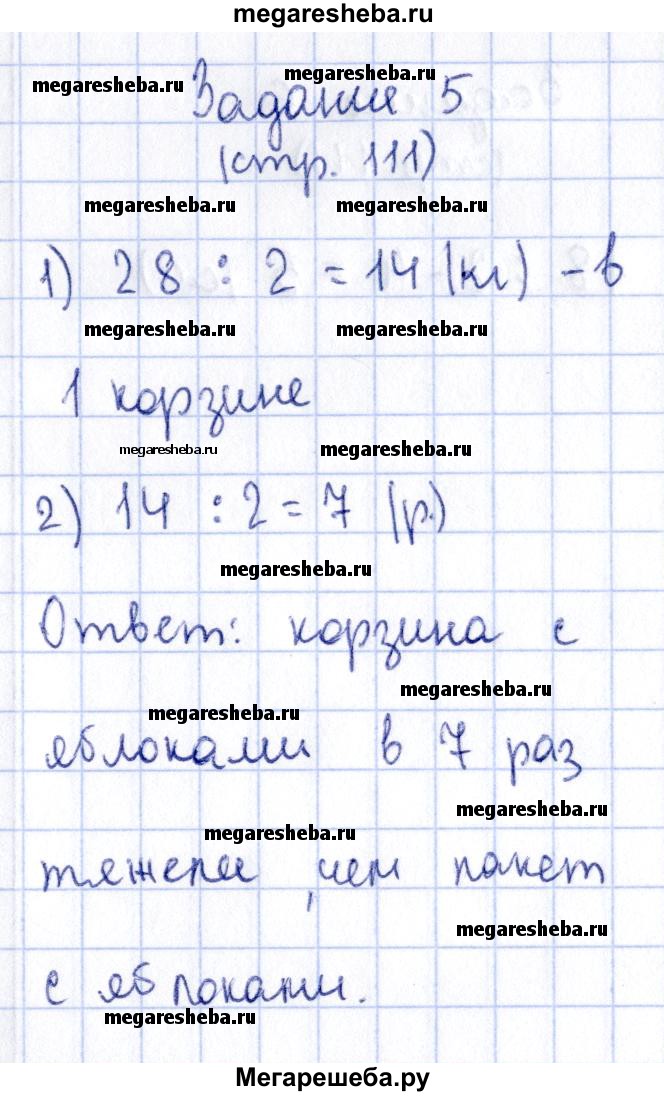 megaresheba.ru
megaresheba.ru
megaresheba.ru
Задание 5
(стр. 111)
megaresheba.ru
megaresheba.ru
1) 28 : 2 = 14 (кг) - в
megaresheba.ru
megaresheba.ru
1 корзине
megaresheba.ru
megaresheba.ru
2) 14 : 2 = 7 (р.)
megaresheba.ru
Ответ: корзина с
megaresheba.ru
megaresheba.ru
яблоками в 7 раз
megaresheba.ru
megaresheba.ru
тяжелее, чем пакет
megaresheba.ru
с яблоками.
megaresheba.ru
Мегарешеба.ру